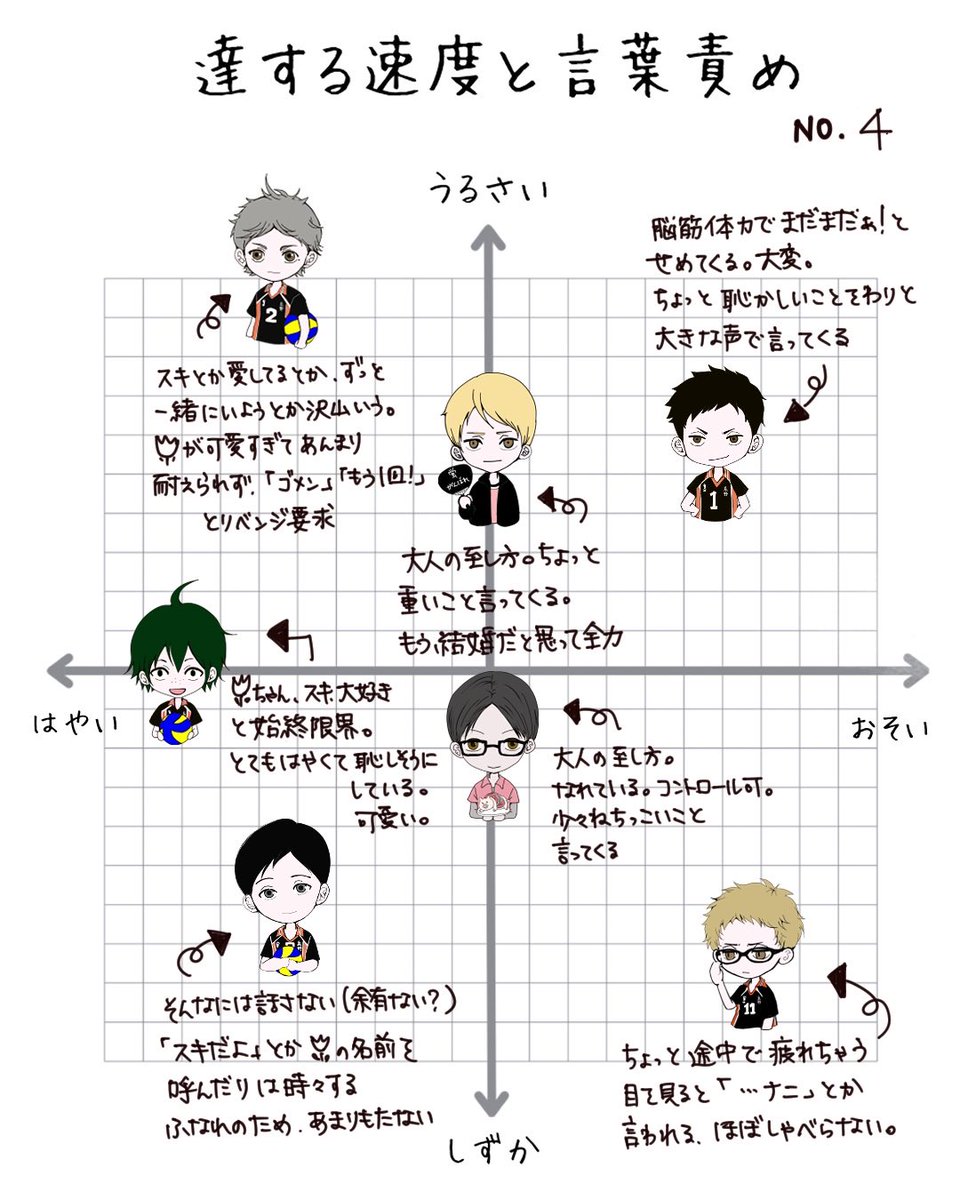 達する速度と言葉責め
NO. 4
うるさい
脳筋体力でまだまだぁ!と
せめてくる。大変。
ちょっと恥かしいことをわりと
大きな声で言ってくる
2
スキとか愛してるとか、ずっと
一緒にいようとか沢山いう。
が可愛すぎてあんまり
耐えられず、「ゴメン」「もう1回!」
とリベンジ要求
蛍
がんばれ
1
大人の至し方。ちょっと
重いこと言ってくる。
もう、結婚だと思って全力
はやい
おそい
ちゃん、スキ、大好き
と始終限界。
とてもはやくて恥しそうに
している。
可愛い。
大人の至し方。
なれている。コントロール可。
少々ねちっこいこと
言ってくる
そんなには話さない(余有ない?)
「スキだよ」とか の名前を
呼んだりは時々する
ふなれのため、あまりもたない
11
ちょっと途中で疲れちゃう
目で見ると「…ナニ」とか
言われる、ほぼしゃべらない。
しずか